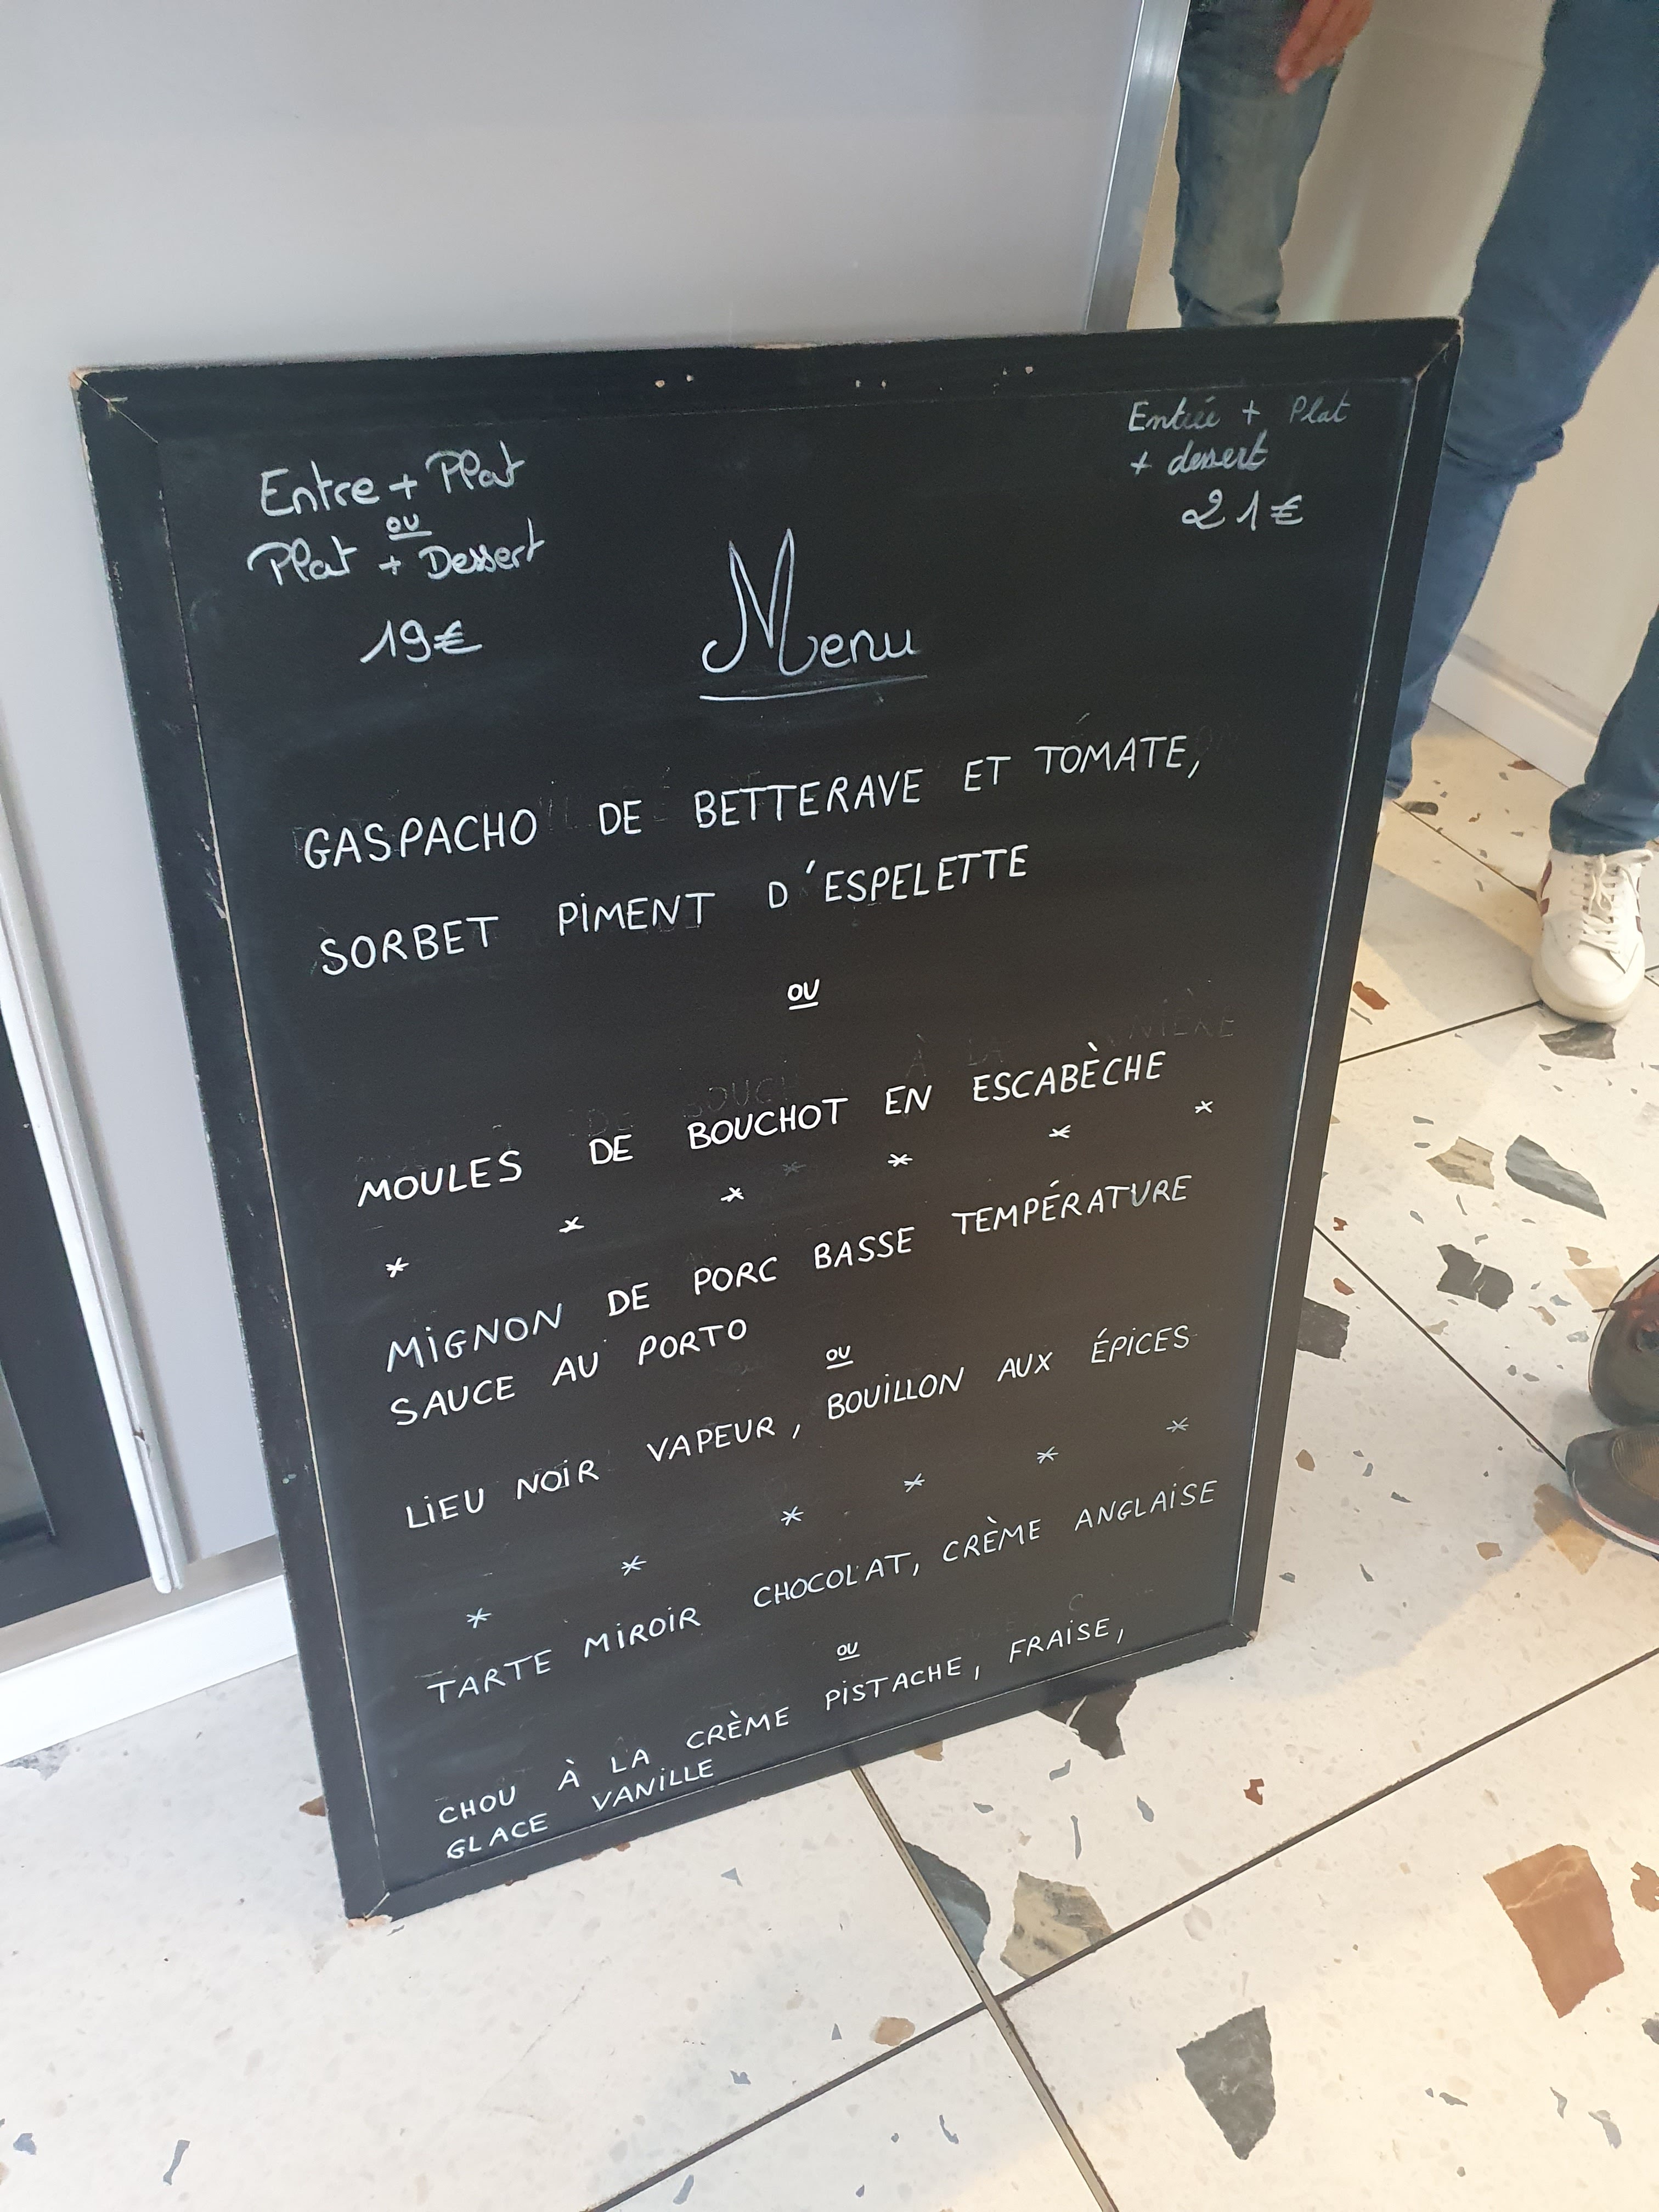 Entre + Plat
ou
Plat + Dessert
19€
Entrée + Plat
+ dessert
21€
Menu
GASPACHO DE BETTERAVE ET TOMATE,
SORBET PIMENT D'ESPELETTE
OU
MOULES DE BOUCHOT EN ESCABÈCHE
* * * * * *
MIGNON DE PORC BASSE TEMPÉRATURE
SAUCE AU PORTO
OU
LIEU NOIR VAPEUR, BOUILLON AUX ÉPICES
* * * * * *
TARTE MIROIR CHOCOLAT, CRÈME ANGLAISE
OU
CHOU À LA CRÈME PISTACHE, FRAISE,
GLACE VANILLE